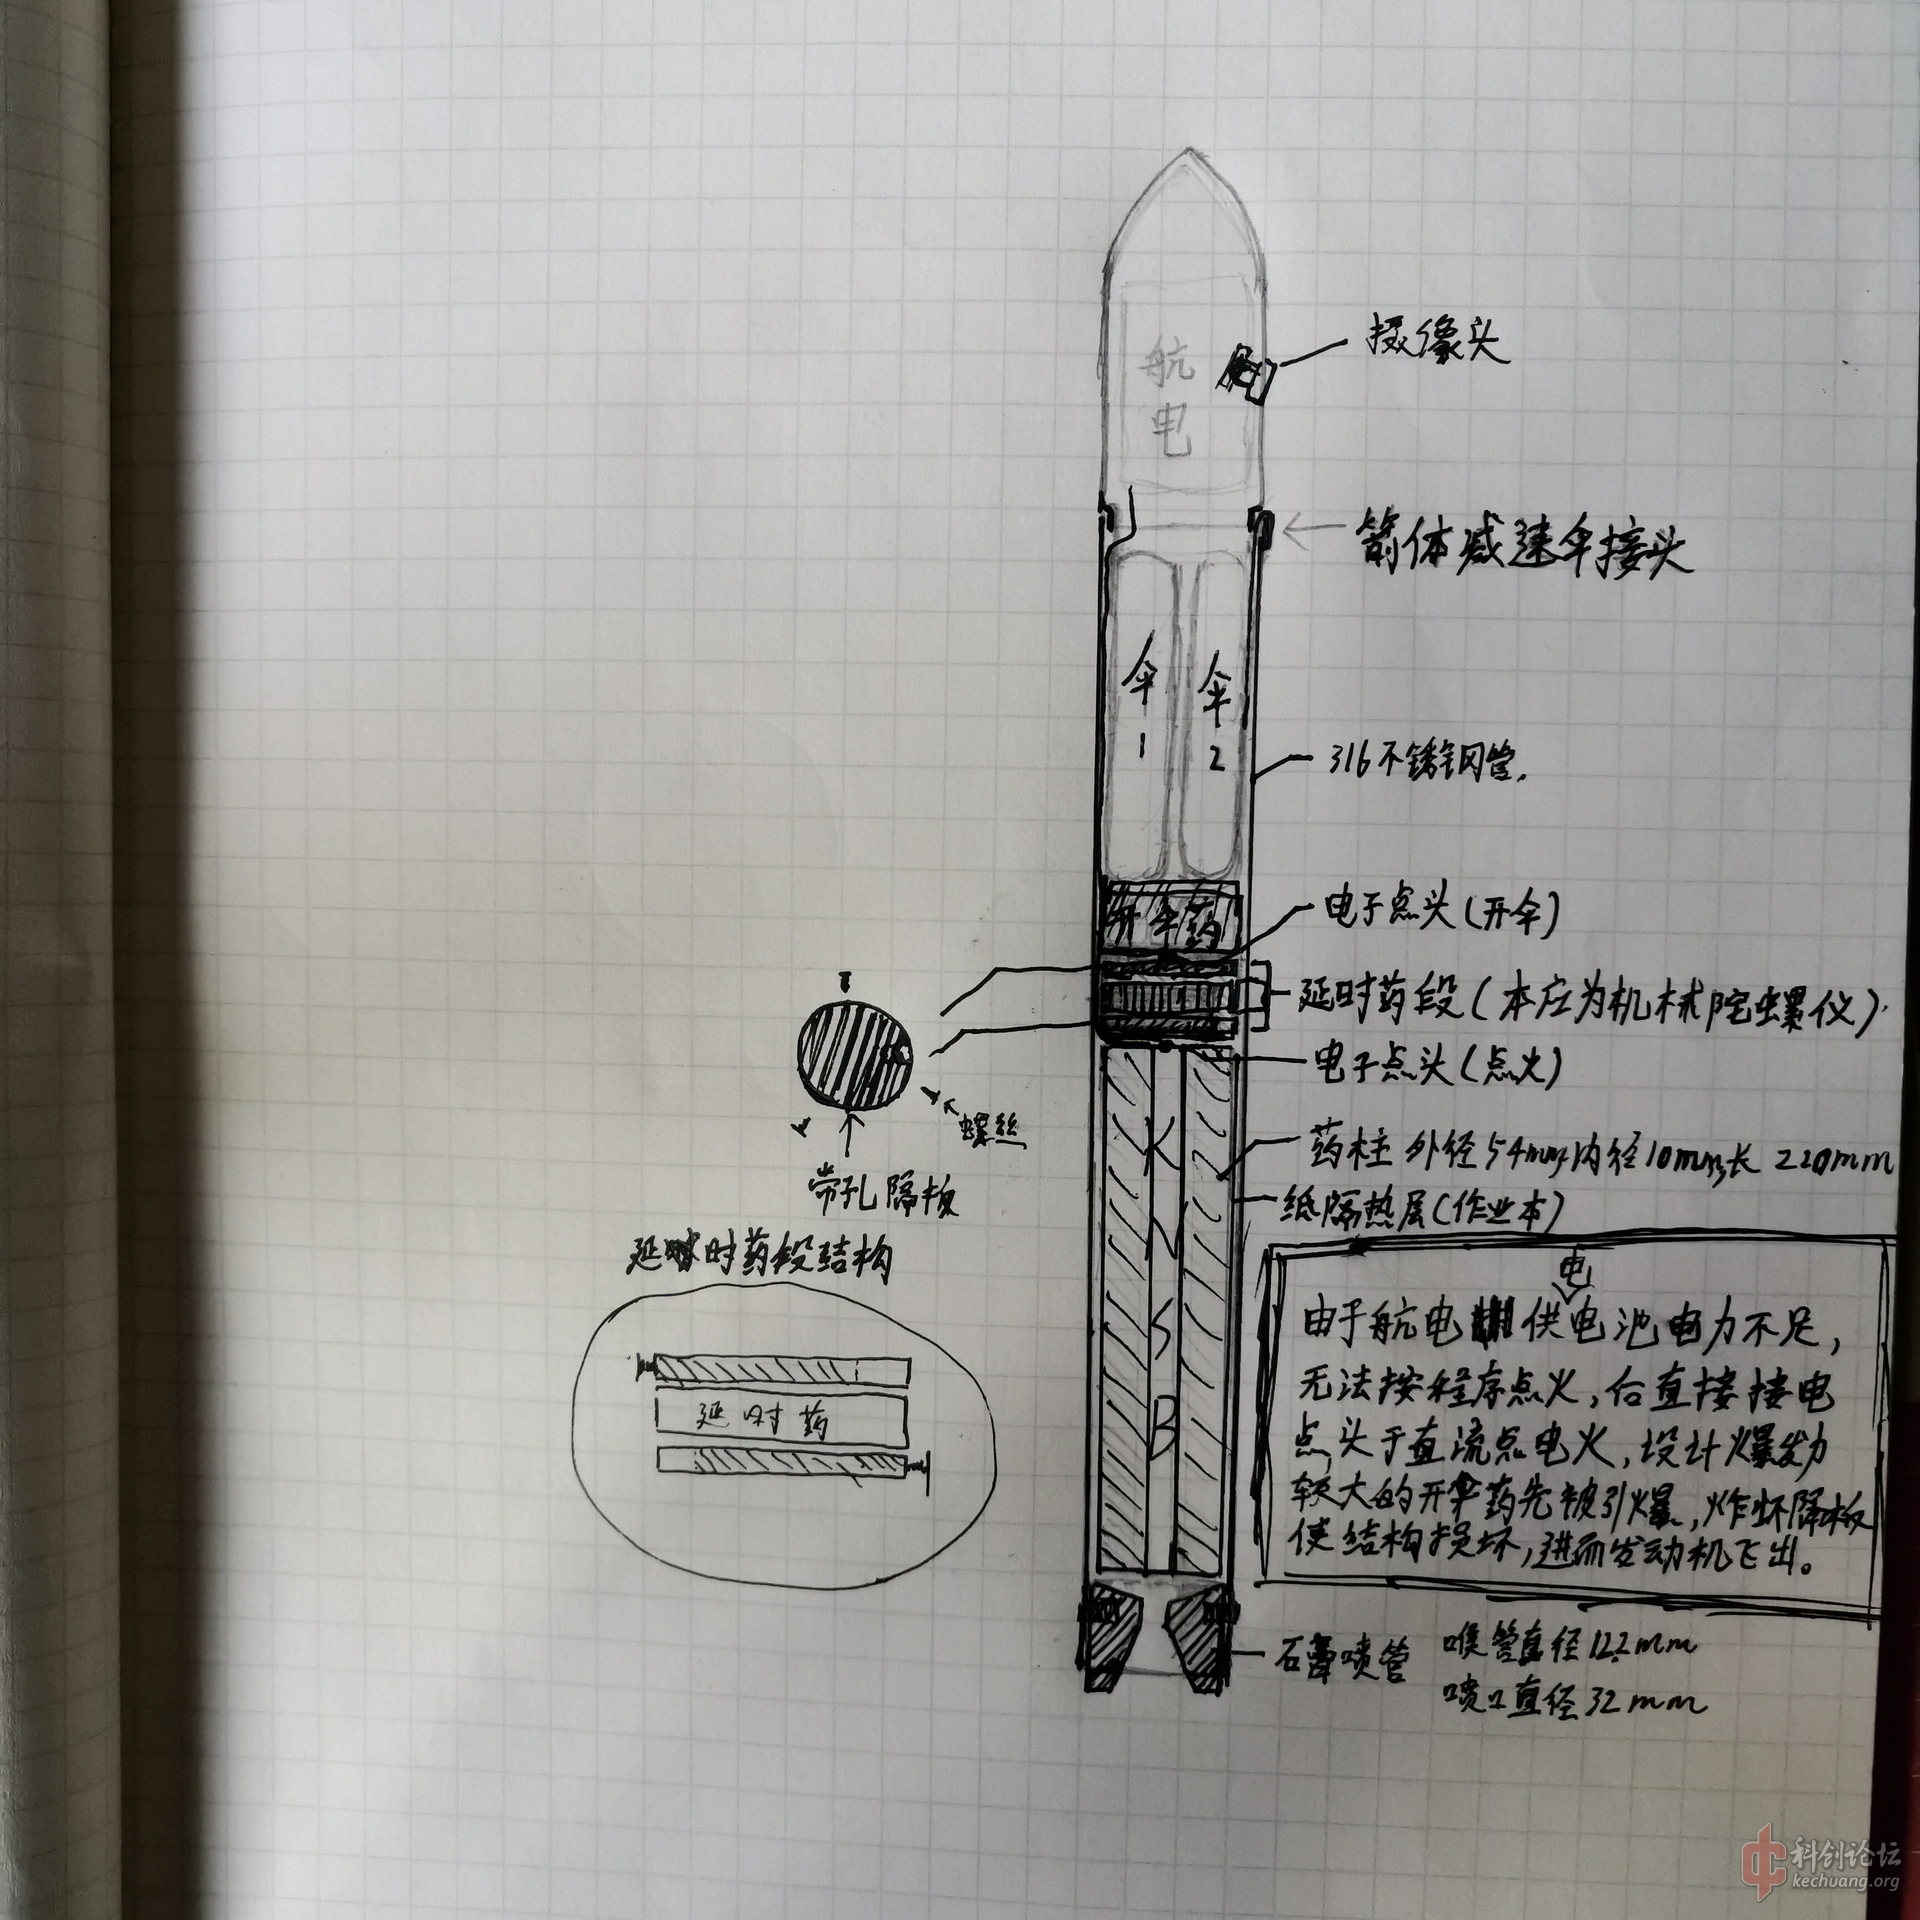 摄像头
航
电
箭体减速伞接头
伞
1
伞
2
316不锈钢管.
开伞药
电子点头(开伞)
延时药段(本应为机械陀螺仪)
电子点头(点火)
螺丝
带孔隔板
药柱 外径54mm内径10mm长 220mm
纸隔热层(作业本)
K
N
S
B
延时药段结构
延时药
电
由于航电供电池电力不足,
无法按程序点火,后直接接电
点头于直流点电火,设计爆发力
较大的开伞药先被引爆,炸坏隔板
使结构损坏,进而发动机飞出。
石膏喷管 喉管直径12.2mm
喷口直径32mm
科创论坛
kechuang.org